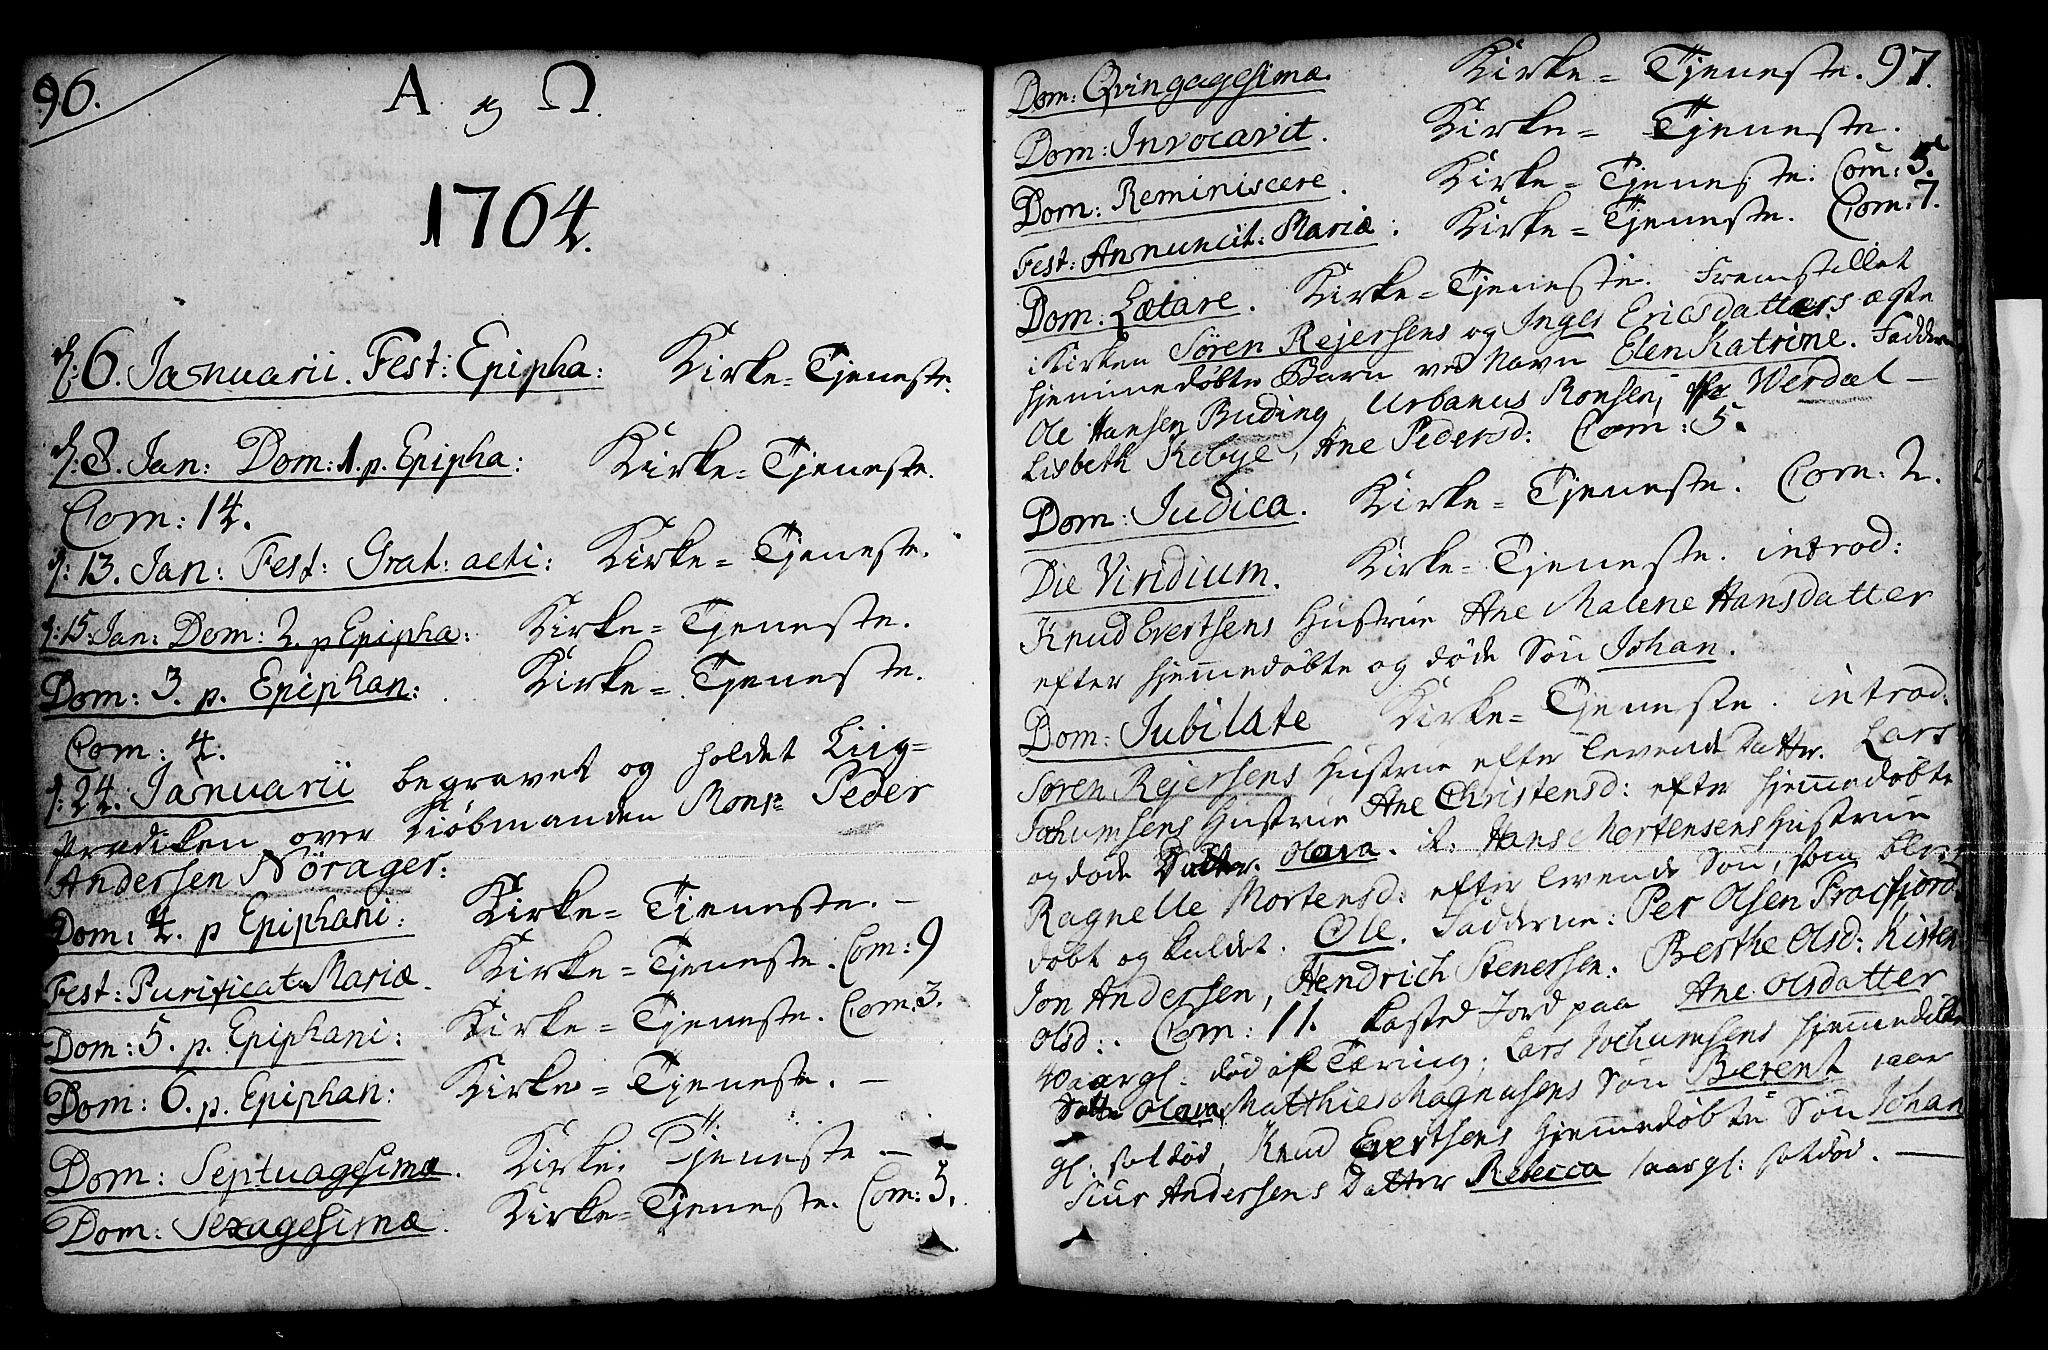 96.
A og Ω.
1764.
d: 6. Januarii. Fest: Epipha: Kirke-Tjeneste.
d: 8. Jan: Dom: 1. p. Epipha: Kirke-Tjeneste.
Com: 14.
d: 13. Jan: Fest: Grat: acti: Kirke-Tjeneste.
d: 15. Jan: Dom: 2. p Epipha: Kirke-Tjeneste.
Dom: 3. p. Epiphan: Kirke-Tjeneste.
Com: 4.
d: 24. Januarii begravet og holdet Liig-
Prædiken over Kiøbmanden Monsr Peder
Andersen Nörager:
Dom: 4. p Epiphani: Kirke-Tjeneste. —
Fest: Purificat: Mariæ. Kirke-Tjeneste. Com: 9
Dom: 5. p. Epiphani: Kirke-Tjeneste. Com: 3.
Dom: 6. p. Epiphan: Kirke-Tjeneste. —
Dom: Septuagesimæ. Kirke. Tjeneste —
Dom: Sexagesimæ. Kirke-Tjeneste. Com: 3.
97.
Dom: Qvingagesimæ. Kirke-Tjeneste.
Dom: Invocavit. Kirke-Tjeneste.
Dom: Reminiscere. Kirke-Tjeneste. Com: 5.
Fest: Annuncit: Mariæ: Kirke-Tjeneste. Com: 7.
Dom: Lætare. Kirke-Tjeneste. Fremstillet
i Kirken Søren Rejersens og Inges Ericsdatters ægte
hjemmedøbte Barn ved Navn Elen Katrine. Faddere
Ole Hansen Buding, Urbanus Ronsen, Werdal —
Lisbeth Kobye, Ane Pedersd: Com: 5.
Dom: Judica. Kirke-Tjeneste. Com: 2.
Die Viridium. Kirke-Tjeneste. introd:
Knud Evertsens Hustrue Ane Malene Hansdatter
efter hjemmedøbte og døde Søn Johan.
Dom: Jubilate Kirke-Tjeneste. introd:
Søren Rejersens Hustrue efter levende Datter. Lars
Jochumsens Hustrue Ane Christensd: efter hjemmedøbte
og døde Datter. Olava. it. Hans Mortensens Hustrue
Ragnelle Mortensd: efter levende Søn, som blev
døbt og kaldet. Ole. Fadderne: Per Olsen Fracfjord.
Jon Andersen, Hendrich Stenersen. Berthe Olsd: Kisten
Olsd:. Com: 11. Kasted Jord paa Ane Olsdatter
gl: død af Tæring; Lars Jochumsens hjemmedøbte
Datter Olava, Matthies Magnusens Søn Berent 1 aar
gl: Knud Evertsens hjemmedøbte Søn Johan
Siur Andersens Datter Rebecca 1 aar gl: —